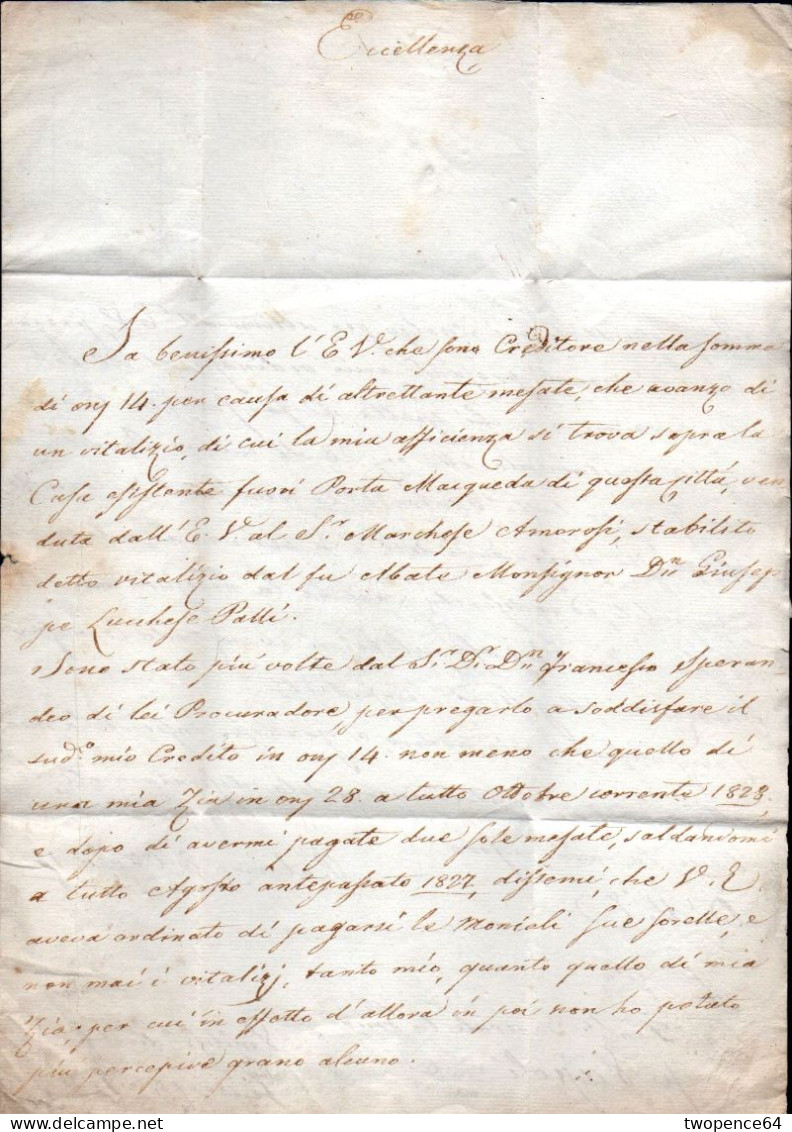 Eccellenza
Sa benissimo l'E V. che sono Creditore nella somma
di onz 14. per causa di altrettante mesate, che avanzo di
un vitalizio, di cui la mia afficienza si trova sopra la
Casa esistente fuori Porta Macqueda di questa Città, ven
duta dall'E. V. al Sr. Marchese Amorosi, stabilito
detto vitalizio dal fu Abate Monsignor Dn. Giusep
pe Lucchese Palli.
Sono stato più volte dal Sr. Dr. Dn. Francesco Speran
deo di lei Procuradore, per pregarlo a soddisfare il
sudo. mio Credito in onz 14. non meno che quello di
una mia Zia in onz 28. a tutto Ottobre corrente 1828,
e dopo di avermi pagate due sole mesate, saldandomi
a tutto Agosto antepassato 1827, dissemi, che V. E.
aveva ordinato di pagarsi le Moniali sue sorelle, e
non mai i vitalizj, tanto mio, quanto quello di mia
Zia; per cui in effetto d'allora in poi non ho potuto
più percepire grano alcuno.
twopence64